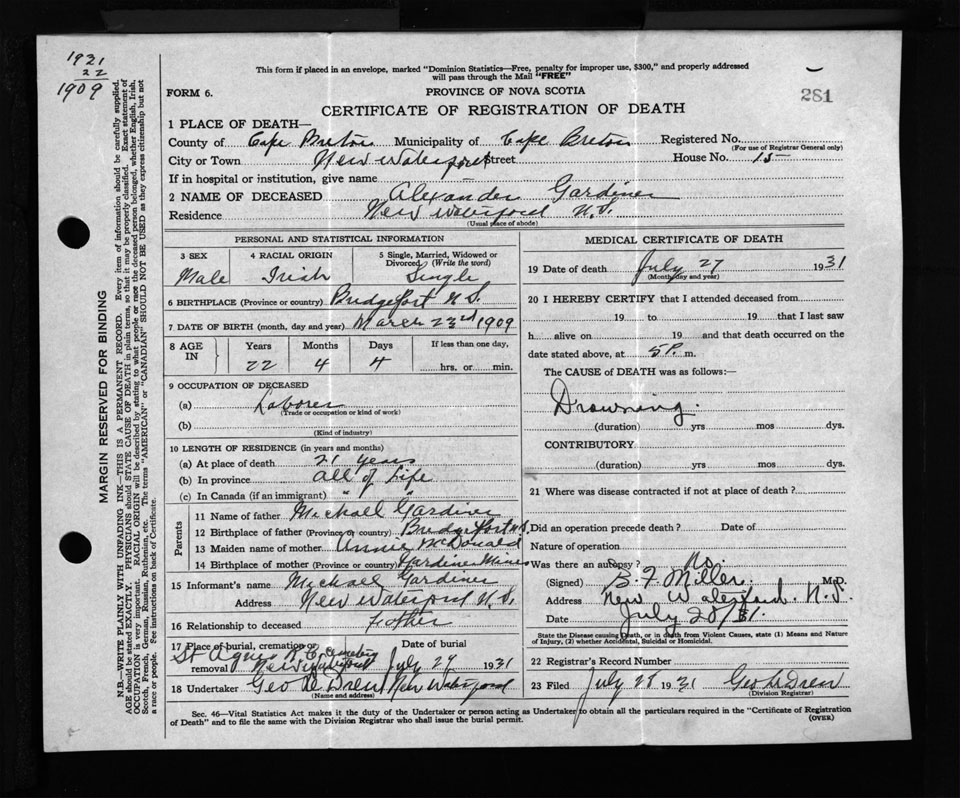 1931
22
1909
This form if placed in an envelope, marked "Dominion Statistics—Free, penalty for improper use, $300," and properly addressed
will pass through the Mail "FREE"
FORM 6.
PROVINCE OF NOVA SCOTIA
281
CERTIFICATE OF REGISTRATION OF DEATH
1 PLACE OF DEATH—
County of Cape Breton Municipality of Cape Breton Registered No.
(For use of Registrar General only)
City or Town New Waterford Street House No. 15
If in hospital or institution, give name
2 NAME OF DECEASED Alexander Gardiner
Residence New Waterford N.S.
(Usual place of abode)
PERSONAL AND STATISTICAL INFORMATION
3 SEX 4 RACIAL ORIGIN 5 Single, Married, Widowed or Divorced (Write the word)
Male Irish Single
6 BIRTHPLACE (Province or country) Bridgeport N.S.
7 DATE OF BIRTH (month, day and year) March 23rd 1909
8 AGE IN Years Months Days If less than one day,
22 4 4 hrs. or min.
9 OCCUPATION OF DECEASED
(a) Laborer
(Trade or occupation or kind of work)
(b)
(Kind of industry)
10 LENGTH OF RESIDENCE (in years and months)
(a) At place of death 21 years
(b) In province all of Life
(c) In Canada (if an immigrant) " " "
Parents
11 Name of father Michael Gardiner
12 Birthplace of father (Province or country) Bridgeport N.S.
13 Maiden name of mother Annie McDonald
14 Birthplace of mother (Province or country) Gardiner Mines
15 Informant's name Michael Gardiner
Address New Waterford N.S.
16 Relationship to deceased Father
17 Place of burial, cremation or removal St Agnes R.C. Cemetery New Waterford
Date of burial July 29 1931
18 Undertaker Geo W Drew New Waterford
(Name and address)
MEDICAL CERTIFICATE OF DEATH
19 Date of death July 27 1931
(Month, day and year)
20 I HEREBY CERTIFY that I attended deceased from
19 to 19 that I last saw
h alive on 19 and that death occurred on the
date stated above, at 5 P. m.
The CAUSE of DEATH was as follows:—
Drowning.
(duration) yrs mos dys.
CONTRIBUTORY
(duration) yrs mos dys.
21 Where was disease contracted if not at place of death?
Did an operation precede death? Date of
Nature of operation
Was there an autopsy? No.
(Signed) B. F. Miller M.D.
Address New Waterford. N.S.
Date July 28/31.
State the Disease causing Death, or in death from Violent Causes, state (1) Means and Nature
of Injury, (2) whether Accidental, Suicidal or Homicidal.
22 Registrar's Record Number
23 Filed July 28 1931 Geo W Drew
(Division Registrar)
Sec. 46—Vital Statistics Act makes it the duty of the Undertaker or person acting as Undertaker to obtain all the particulars required in the "Certificate of Registration
of Death" and to file the same with the Division Registrar who shall issue the burial permit.
(OVER)
MARGIN RESERVED FOR BINDING
N.B.—WRITE PLAINLY WITH UNFADING INK—THIS IS A PERMANENT RECORD. Every item of information should be carefully supplied.
AGE should be stated EXACTLY. PHYSICIANS should STATE CAUSE OF DEATH in plain terms, so that it may be properly classified. Exact statement of
OCCUPATION is very important. RACIAL ORIGIN will be described by stating to what people or race the deceased person belonged, whether English, Irish,
Scotch, French, German, Russian, Ruthenian, etc. The terms "AMERICAN" or "CANADIAN" SHOULD NOT BE USED as they express citizenship but not
a race or people. See instructions on back of Certificate.